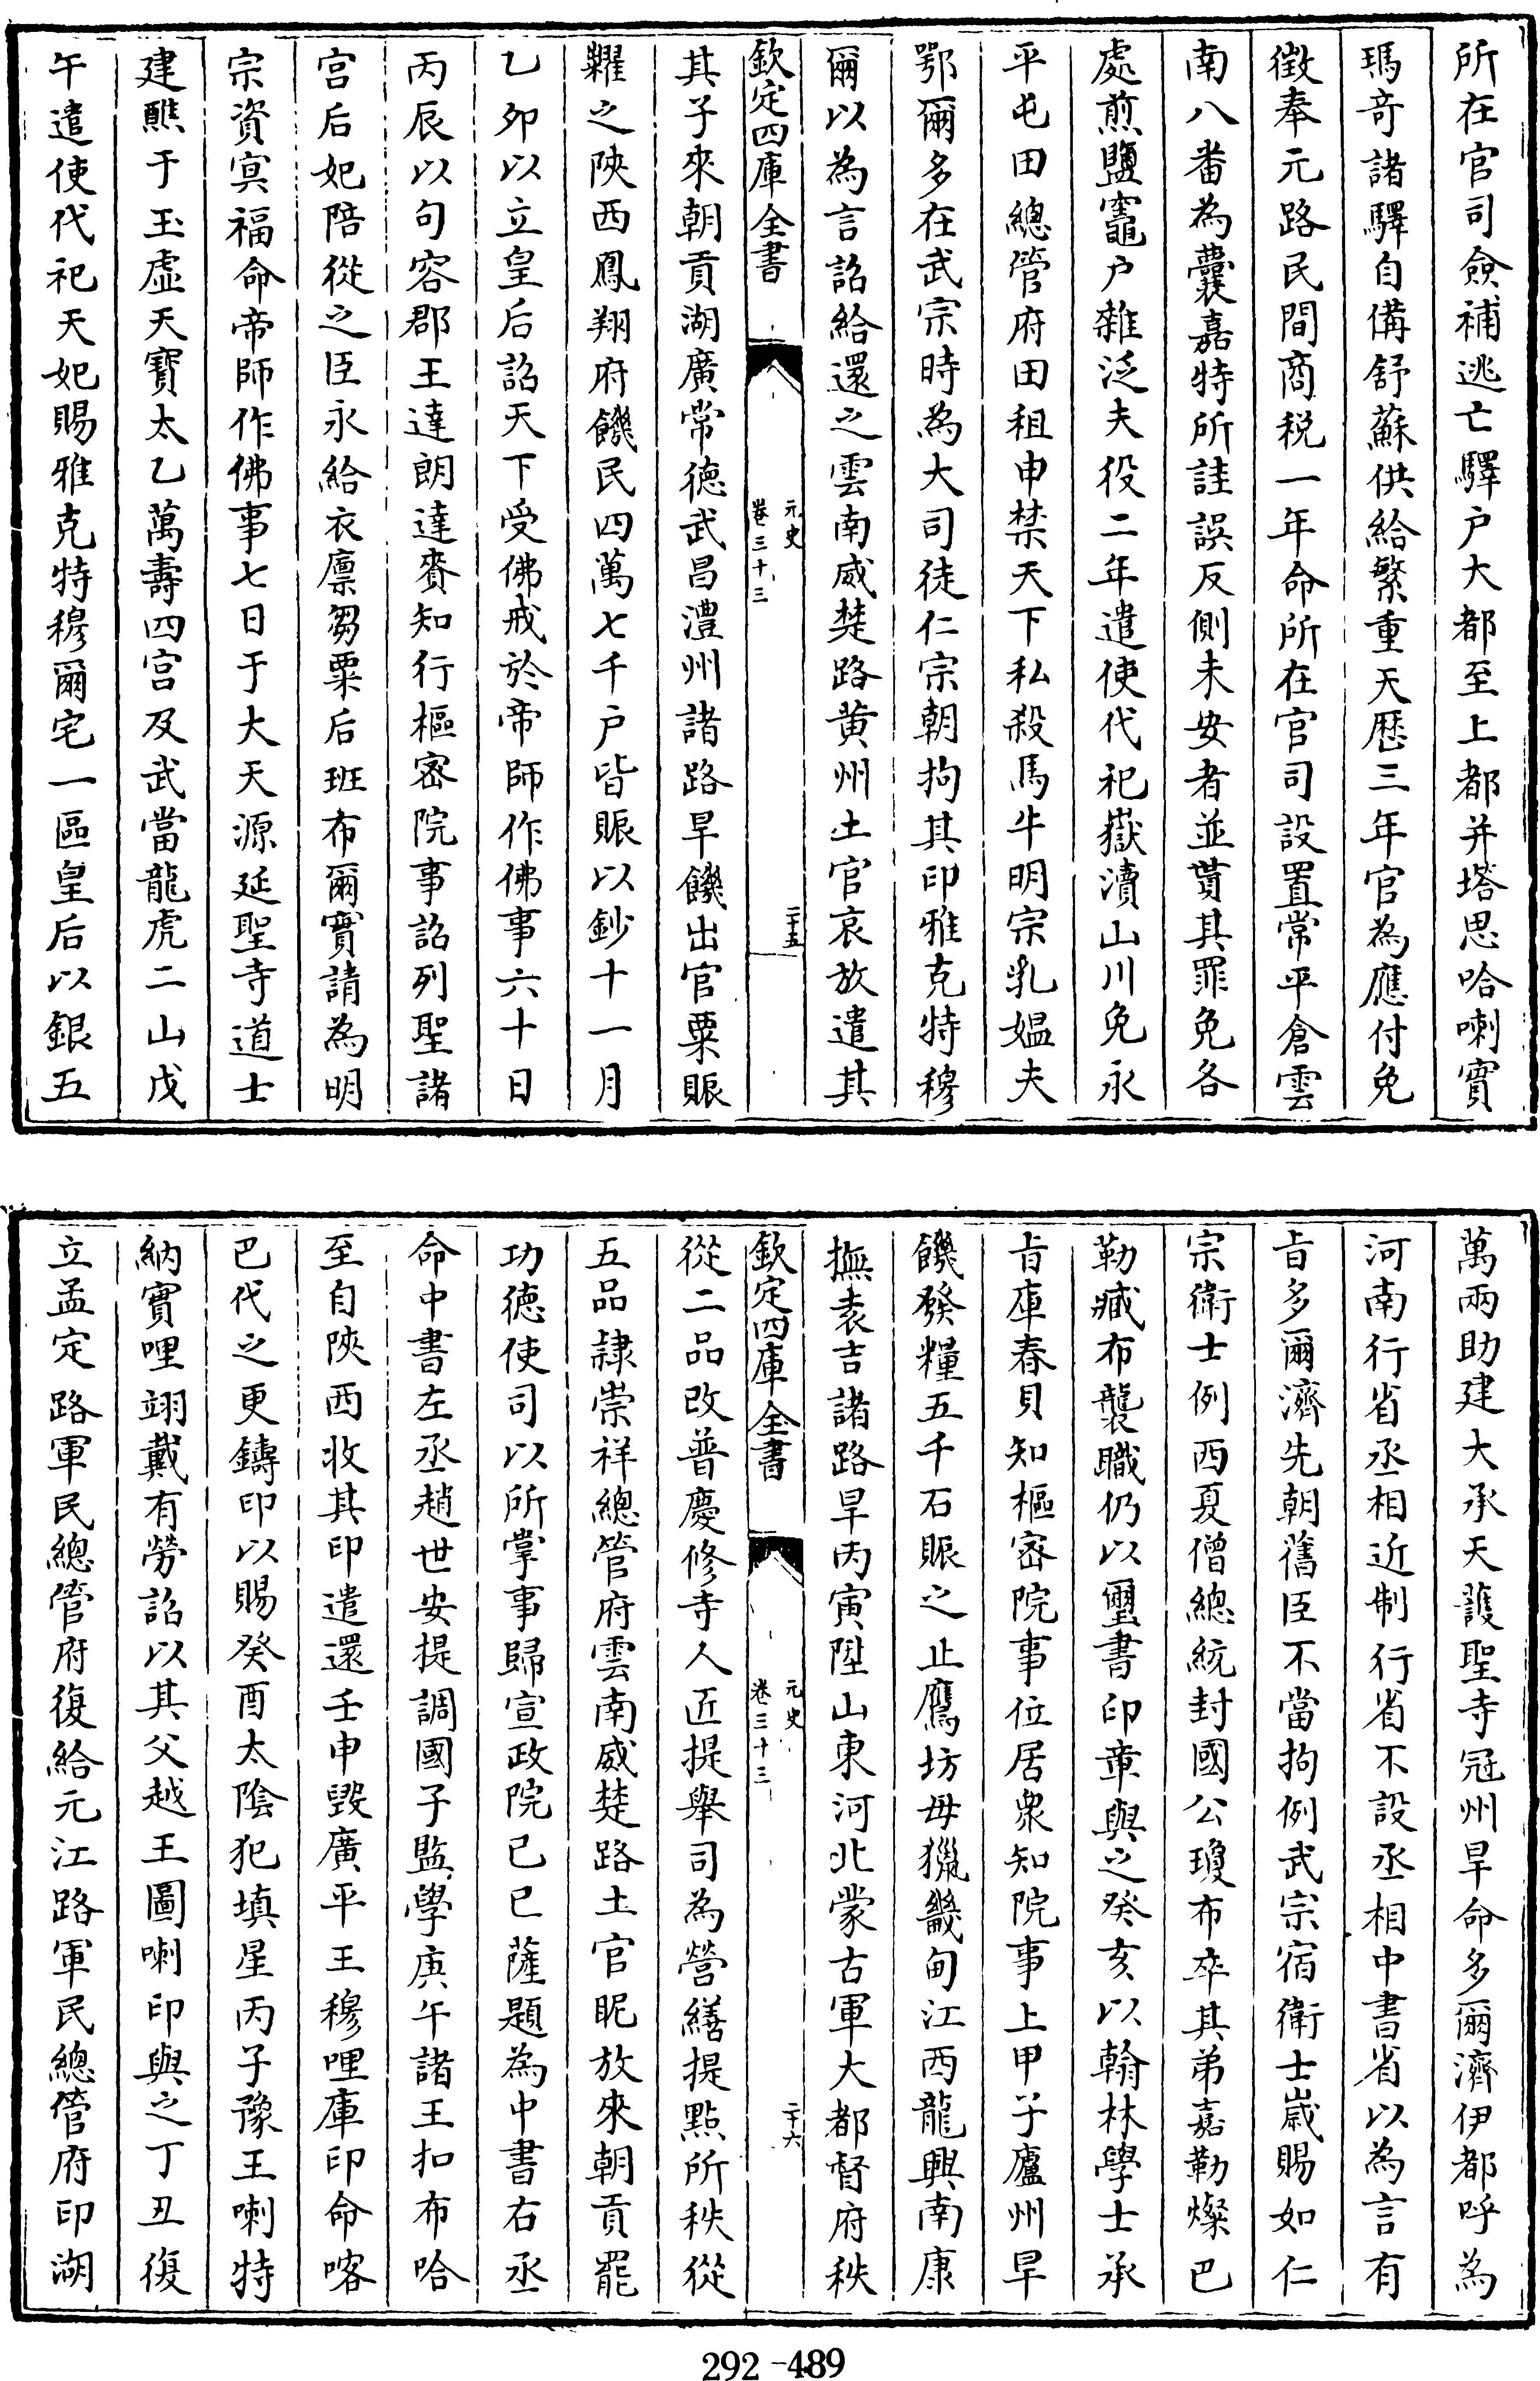 所在官司僉補逃亡驛户大都至上都并塔思哈喇實
瑪竒諸驛自備舒蘇供給繁重天歴三年官為應付免
徴奉元路民間商税一年命所在官司設置常平倉雲
南八番為囊嘉特所詿誤反側未安者並貰其罪免各
處煎鹽竈户雜泛夫役二年遣使代祀嶽瀆山川免永
平屯田總管府田租申禁天下私殺馬牛明宗乳媼夫
鄂爾多在武宗時為大司徒仁宗朝拘其印雅克特穆
爾以為言詔給還之雲南威楚路黄州土官哀放遣其
欽定四庫全書
元史
卷三十三
二十五
其子來朝貢湖廣常德武昌澧州諸路旱饑出官粟賑
糶之陜西鳳翔府饑民四萬七千户皆賑以鈔十一月
乙夘以立皇后詔天下受佛戒於帝師作佛事六十日
丙辰以句容郡王達朗達賚知行樞密院事詔列聖諸
宫后妃陪從之臣永給衣廪芻粟后班布爾實請為明
宗資冥福命帝師作佛事七日于大天源延聖寺道士
建醮于玉虚天寶太乙萬壽四宫及武當龍虎二山戊
午遣使代祀天妃賜雅克特穆爾宅一區皇后以銀五
萬兩助建大承天護聖寺冠州旱命多爾濟伊都呼為
河南行省丞相近制行省不設丞相中書省以為言有
旨多爾濟先朝舊臣不當拘例武宗宿衛士嵗賜如仁
宗衛士例西夏僧總統封國公瓊布卒其弟嘉勒燦巴
勒臧布襲職仍以璽書印章與之癸亥以翰林學士承
旨庫春貝知樞密院事位居衆知院事上甲子廬州旱
饑發糧五千石賑之止鷹坊毋獵畿甸江西龍興南康
撫袁吉諸路旱丙寅陞山東河北蒙古軍大都督府秩
欽定四庫全書
元史
卷三十三
二十六
從二品改普慶修寺人匠提舉司為營繕提點所秩從
五品隷崇祥總管府雲南威楚路土官昵放來朝貢罷
功德使司以所掌事歸宣政院己巳薩題為中書右丞
命中書左丞趙世安提調國子監學庚午諸王扣布哈
至自陜西收其印遣還壬申毁廣平王穆哩庫印命喀
巴代之更鑄印以賜癸酉太陰犯填星丙子豫王喇特
納實哩翊戴有勞詔以其父越王圖喇印與之丁丑復
立孟定路軍民總管府復給元江路軍民總管府印湖
292-489